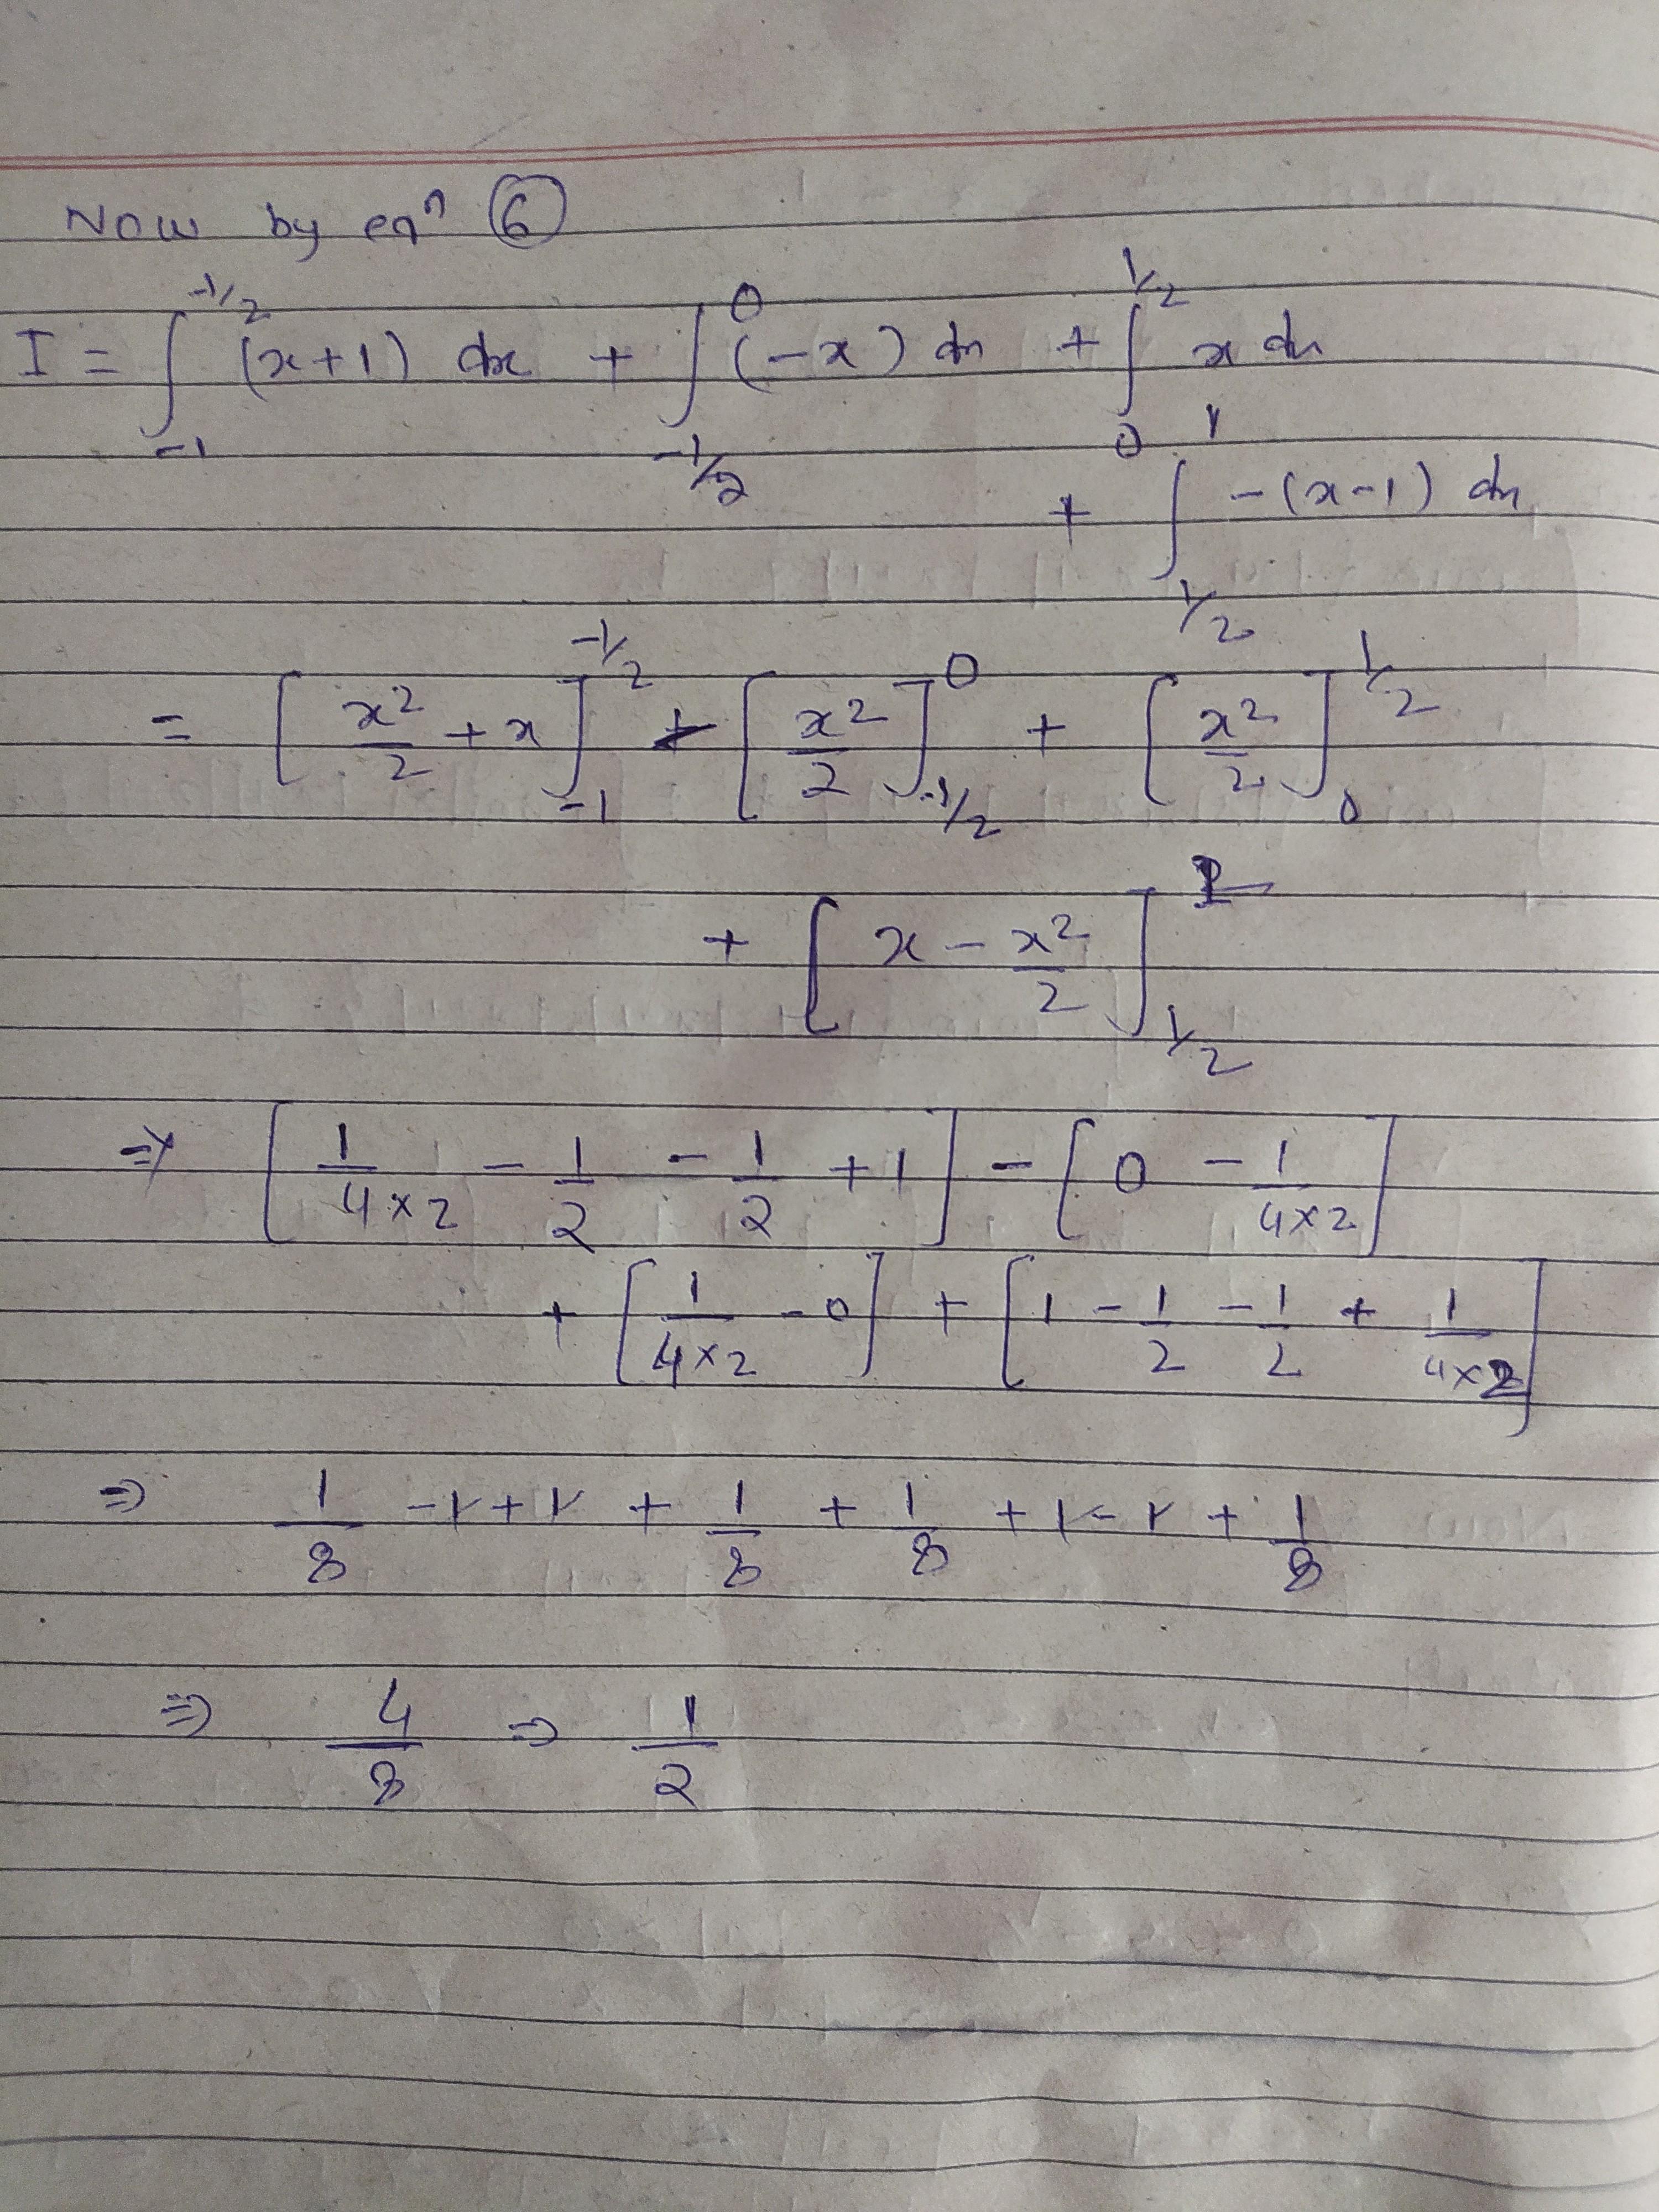 Now by eqⁿ ⑥
I = ∫_{-1}^{-1/2} (x+1) dx + ∫_{-1/2}^{0} (-x) dx + ∫_{0}^{1/2} x dx
+ ∫_{1/2}^{1} -(x-1) dx
= [x²/2 + x]_{-1}^{-1/2} - [x²/2]_{-1/2}^{0} + [x²/2]_{0}^{1/2}
+ [x - x²/2]_{1/2}^{1}
⇒ [1/(4×2) - 1/2 - 1/2 + 1] - [0 - 1/(4×2)]
+ [1/(4×2) - 0] + [1 - 1/2 - 1/2 + 1/(4×2)]
⇒ 1/8 - 1 + 1 + 1/8 + 1/8 + 1 - 1 + 1/8
⇒ 4/8 ⇒ 1/2